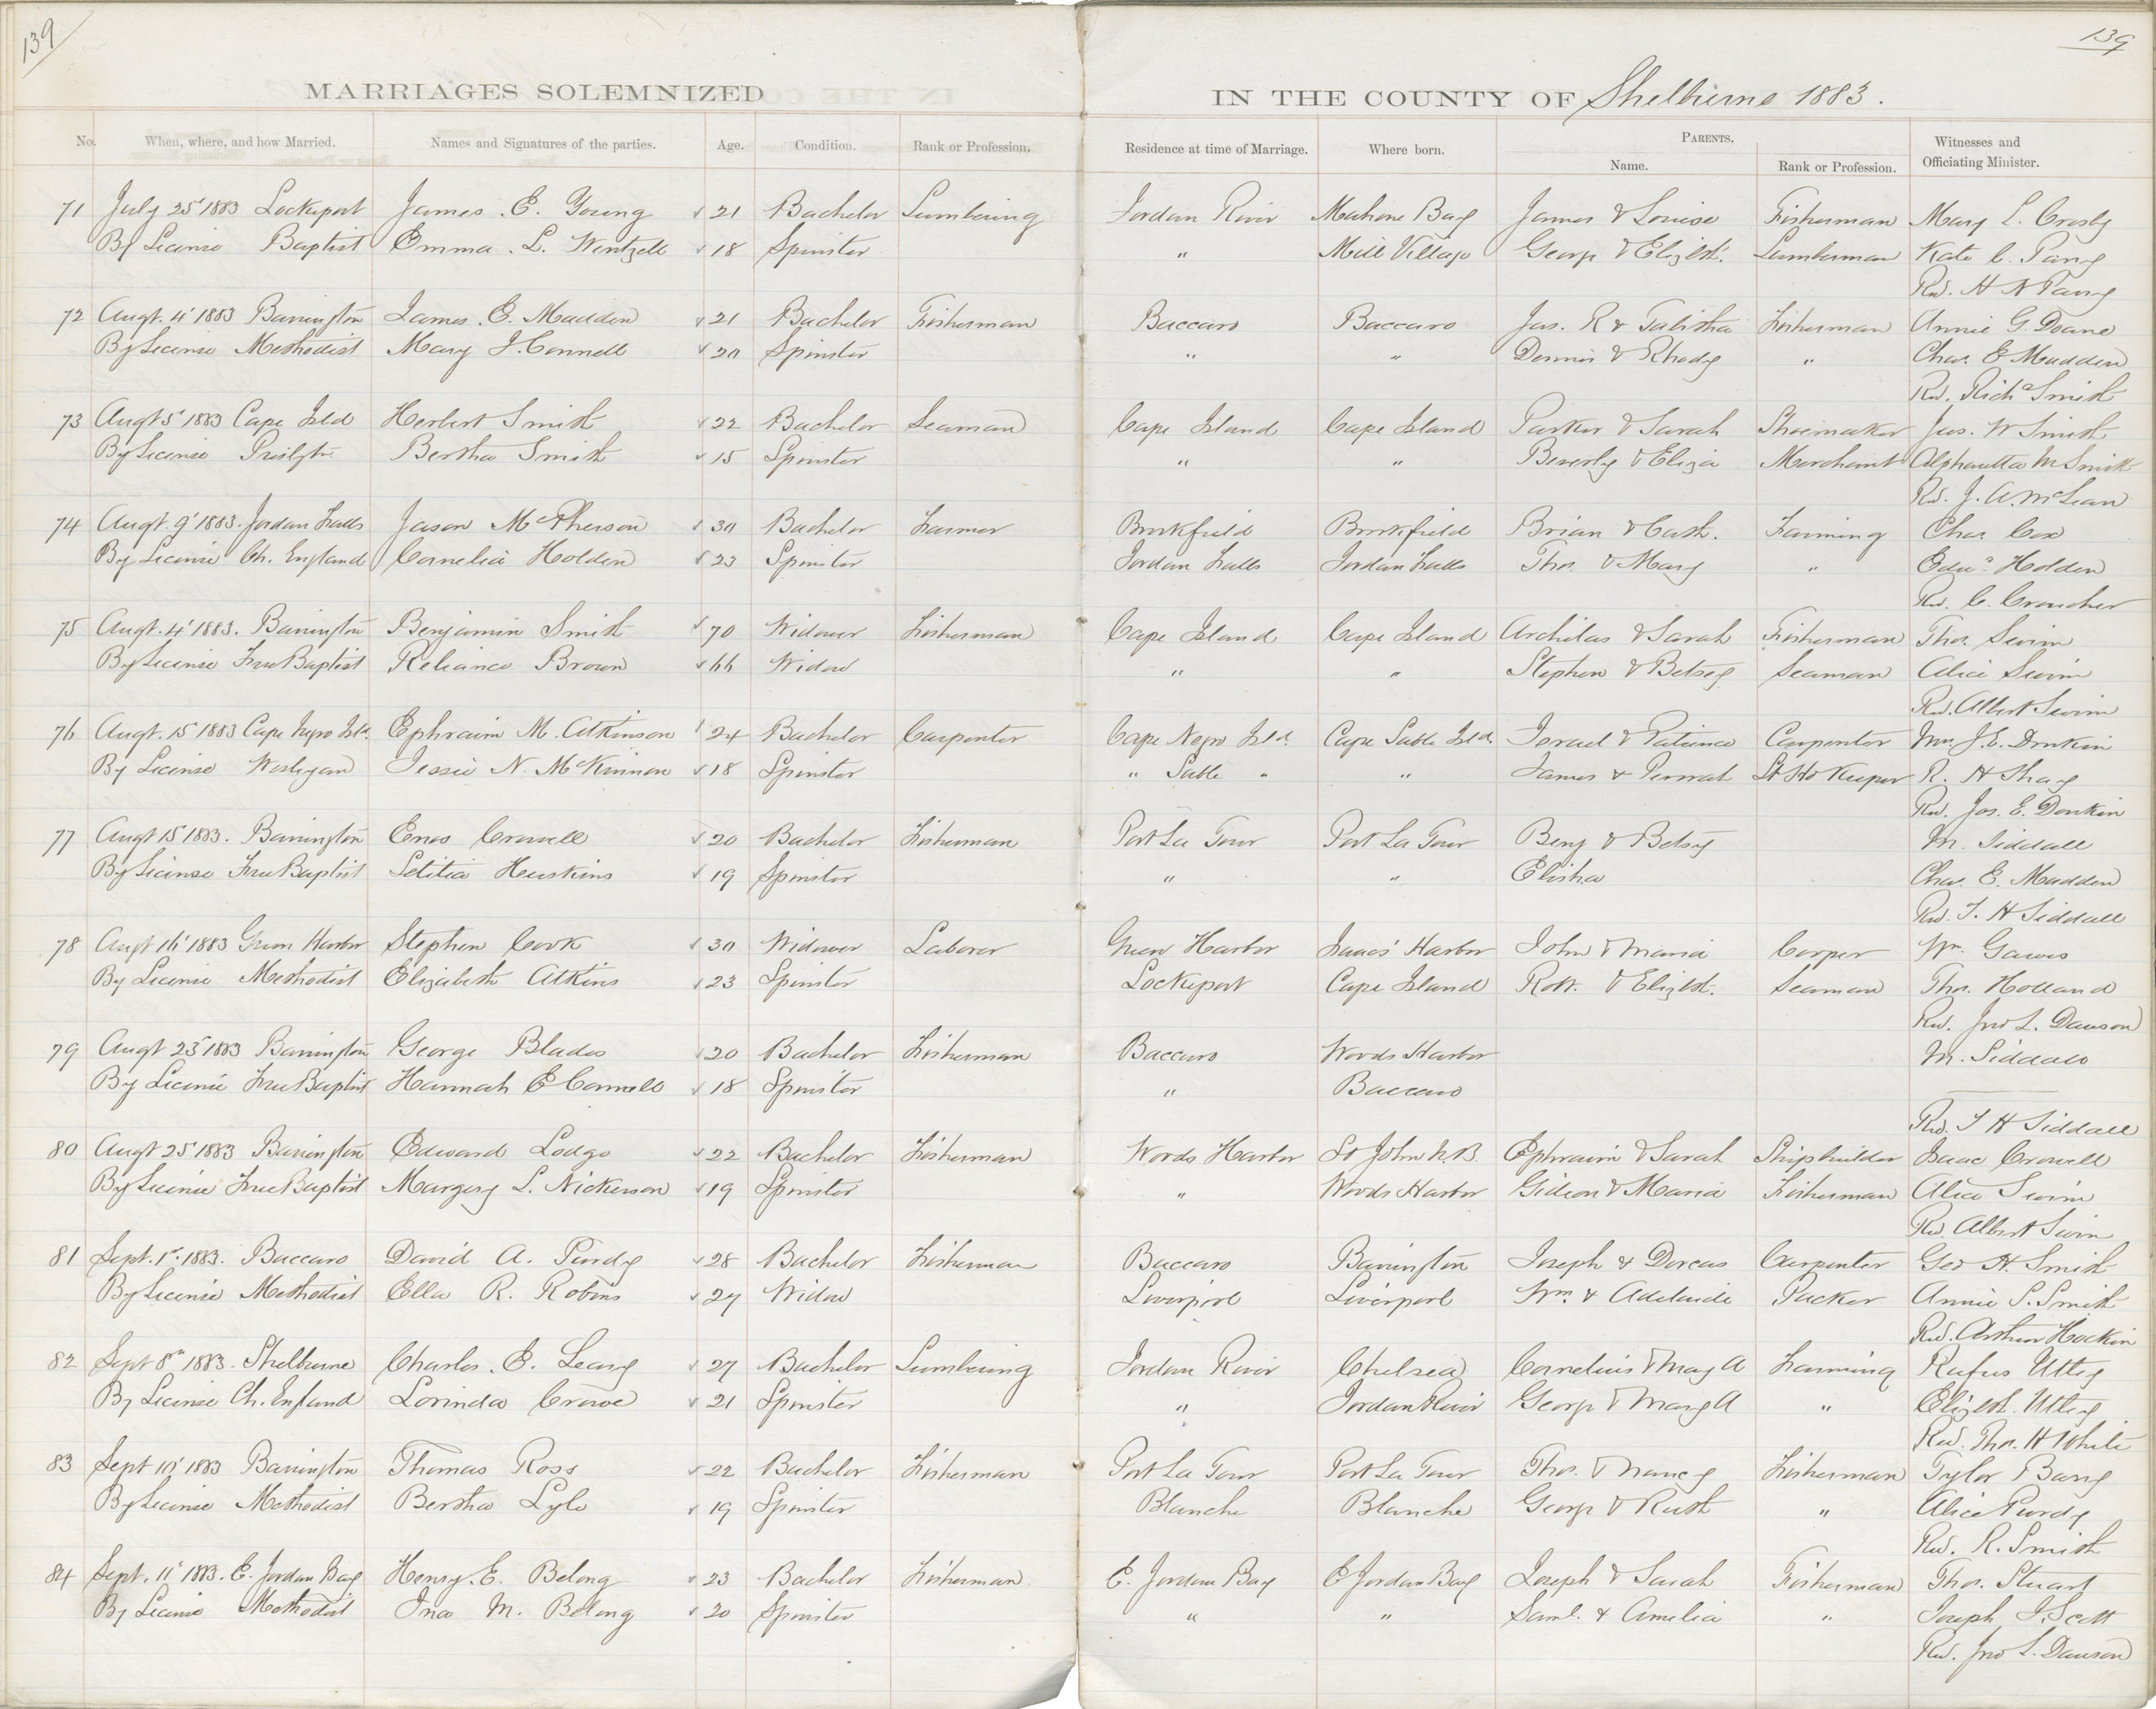 139
139
MARRIAGES SOLEMNIZED IN THE COUNTY OF Shelburne 1883.
No. When, where, and how Married. Names and Signatures of the parties. Age. Condition. Rank or Profession. Residence at time of Marriage. Where born. PARENTS. Name. Rank or Profession. Witnesses and Officiating Minister.
71 July 25' 1883 Lockeport James. E. Young 21 Bachelor Lumbering Jordan River Mahone Bay James & Louise Fisherman Mary L. Crosby
By License Baptist Emma. L. Wentzell 18 Spinster " Mill Village George & Elizbt. Lumberman Kate C. Parry
Rev. H N Parry
72 Augt. 4' 1883 Barrington James. E. Madden 21 Bachelor Fisherman Baccaro Baccaro Jas. R & Tabitha Fisherman Annie G. Doane
By License Methodist Mary J. Connell 20 Spinster " " Dennis & Rhody " Chas. E Madden
Rev. Richd Smith
73 Augt 5' 1883 Cape Isld Herbert Smith 22 Bachelor Seaman Cape Island Cape Island Parker & Sarah Shoemaker Jas. W Smith
By License Bertha Smith 15 Spinster " " Beverly & Eliza Merchant Alphauetta M Smith
Rev. J. A. McLean
74 Augt. 9' 1883. Jordan Falls Jason McPherson 30 Bachelor Farmer Brookfield Brookfield Brian & Cath. Farming Chas. Cox
By License Ch. England Cornelia Holden 23 Spinster Jordan Falls Jordan Falls Thos. & Mary " Edwd. Holden
Rev. C. Croucher
75 Augt. 4' 1883. Barrington Benjamin Smith 70 Widower Fisherman Cape Island Cape Island Archilas & Sarah Fisherman Thos. Swim
By License Free Baptist Reliance Brown 66 Widow " " Stephen & Betsey Seaman Alice Swim
Rev. Albert Swim
76 Augt. 15 1883 Cape Negro Isld. Ephraim M. Atkinson 24 Bachelor Carpenter Cape Negro Isld. Cape Sable Isld. Israel & Patience Carpenter Mrs. J. E. Donkin
By License Wesleyan Jessie N. McKinnon 18 Spinster " Sable " " James & Lt Ho Keeper R. H Shay
Rev. Jos. E. Donkin
77 Augt 15' 1883. Barrington Enos Crowell 20 Bachelor Fisherman Port La Tour Port La Tour Benj & Betsy M. Siddall
By License Free Baptist Letitia Huskins 19 Spinster " " Elisha Chas. E. Madden
Rev. T. H Siddall
78 Augt 16' 1883 Green Harbor Stephen Cook 30 Widower Laborer Green Harbor Isaacs' Harbor John & Maria Cooper Wm. Gawes
By License Methodist Elizabeth Atkins 23 Spinster Lockeport Cape Island Robt. & Elizbt. Seaman Thos. Holland
Rev. Jno L. Dawson
79 Augt 23' 1883 Barrington George Blades 20 Bachelor Fisherman Baccaro Woods Harbor M. Siddall
By License Free Baptist Hannah E Connell 18 Spinster " Baccaro
Rev. T H Siddall
80 Augt 25' 1883 Barrington Edward Lodge 22 Bachelor Fisherman Woods Harbor St John N.B. Ephraim & Sarah Shipbuilder Isaac Crowell
By License Free Baptist Margery L. Nickerson 19 Spinster " Woods Harbor Gideon & Maria Fisherman Alice Swim
Rev Albert Swim
81 Sept. 1st. 1883. Baccaro David A. Purdy 28 Bachelor Fisherman Baccaro Barrington Joseph & Dorcas Carpenter Geo H. Smith
By License Methodist Ella R. Robins 27 Widow Liverpool Liverpool Wm. & Adelaide Packer Annie S. Smith
Rev. Arthur Hockin
82 Sept 8th 1883. Shelburne Charles. E. Leary 27 Bachelor Lumbering Jordan River Chelsea Cornelius & Mary A Farming Rufus Uttey
By License Ch. England Lorinda Crowe 21 Spinster " Jordan River George & Mary A " Elizbt. Uttey
Rev. Thos. H White
83 Sept 10' 1883 Barrington Thomas Ross 22 Bachelor Fisherman Port La Tour Port La Tour Thos. & Nancy Fisherman Tyler Barry
By License Methodist Bertha Lyle 19 Spinster Blanche Blanche George & Ruth " Alice Purdy
Rev. R. Smith
84 Sept. 11' 1883. E. Jordan Bay Henry. E. Belong 23 Bachelor Fisherman. E. Jordan Bay E Jordan Bay Joseph & Sarah Fisherman Thos. Stuart
By License Methodist Ina M. Belong 20 Spinster " " Saml. & Amelia " Joseph J. Scott
Rev. Jno L. Dawson